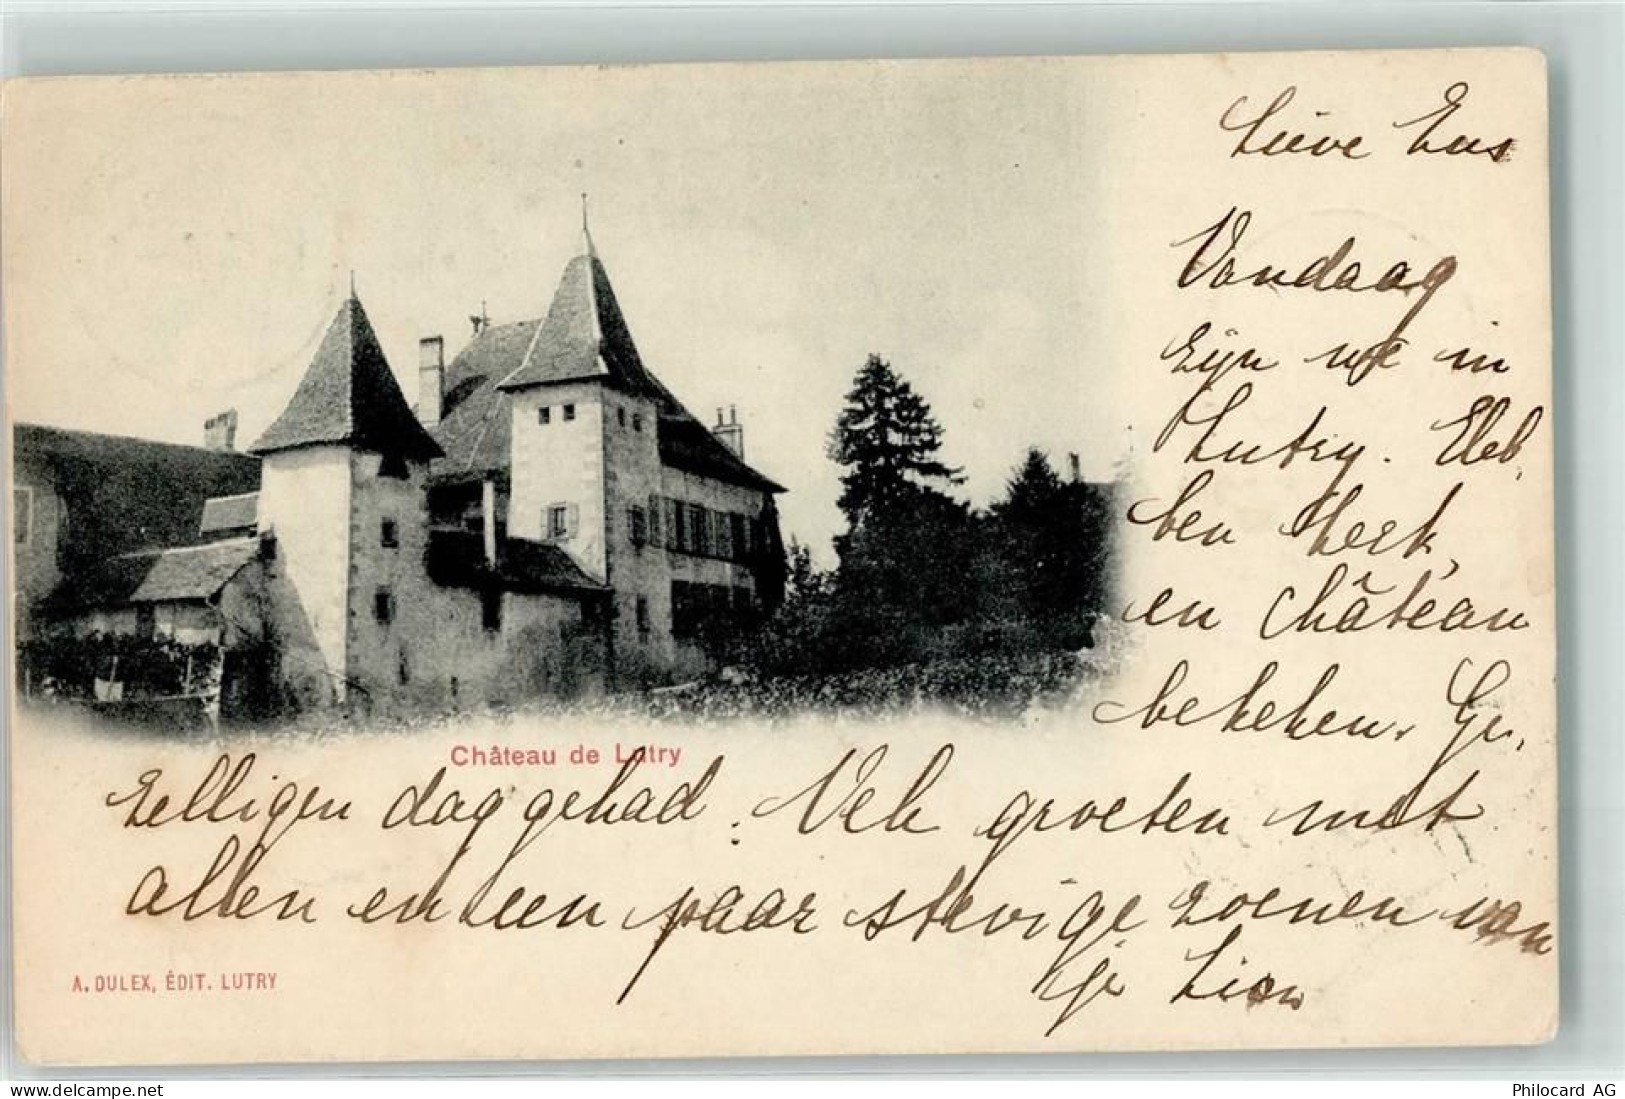 Lieve Eus
Vandaag
zijn we in
Lutry. Heb,
ben kerk,
en Château
bekeken. Ge,
zelligen dag gehad. Vele groeten met
allen en een paar stevige zoenen van
je Lion
Château de Lutry
A. DULEX, ÉDIT. LUTRY
Philocard AG
www.delcampe.net